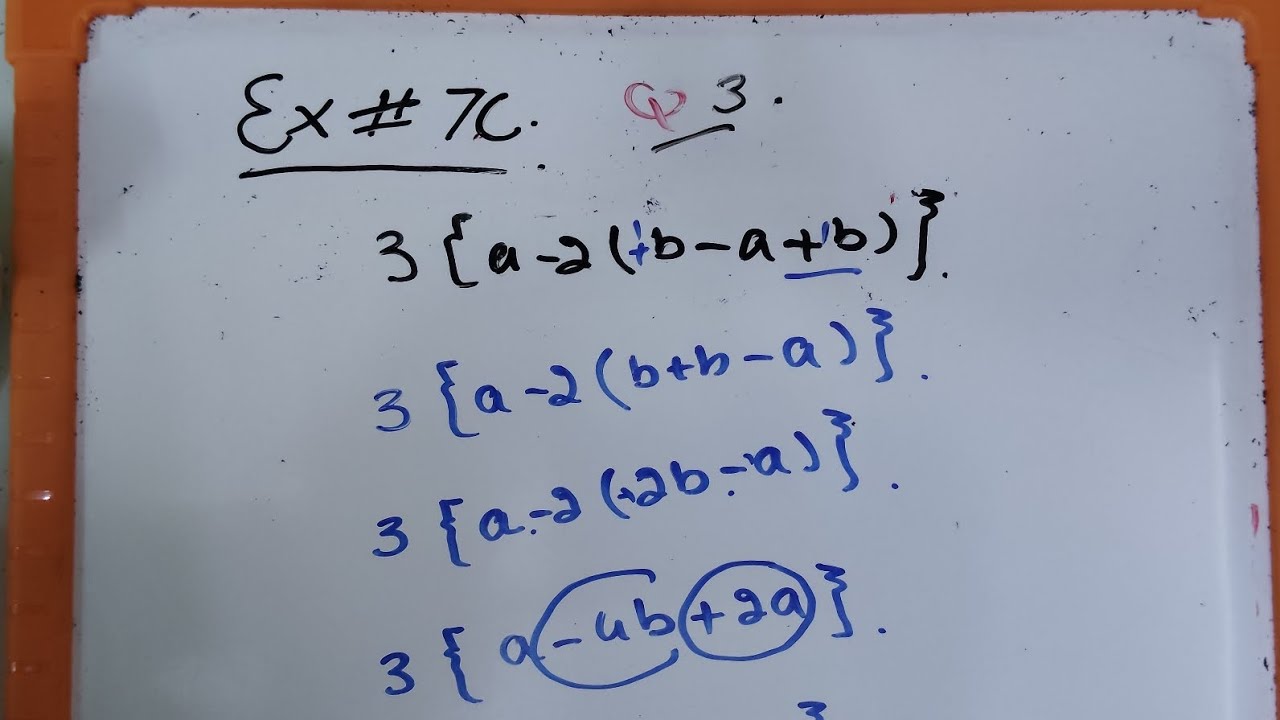 Ex # 7C. Q 3.
3 {a - 2 (+b - a + b)}.
3 {a - 2 (b + b - a)}.
3 {a - 2 (+2b - a)}.
3 {a - 4b + 2a}.
}